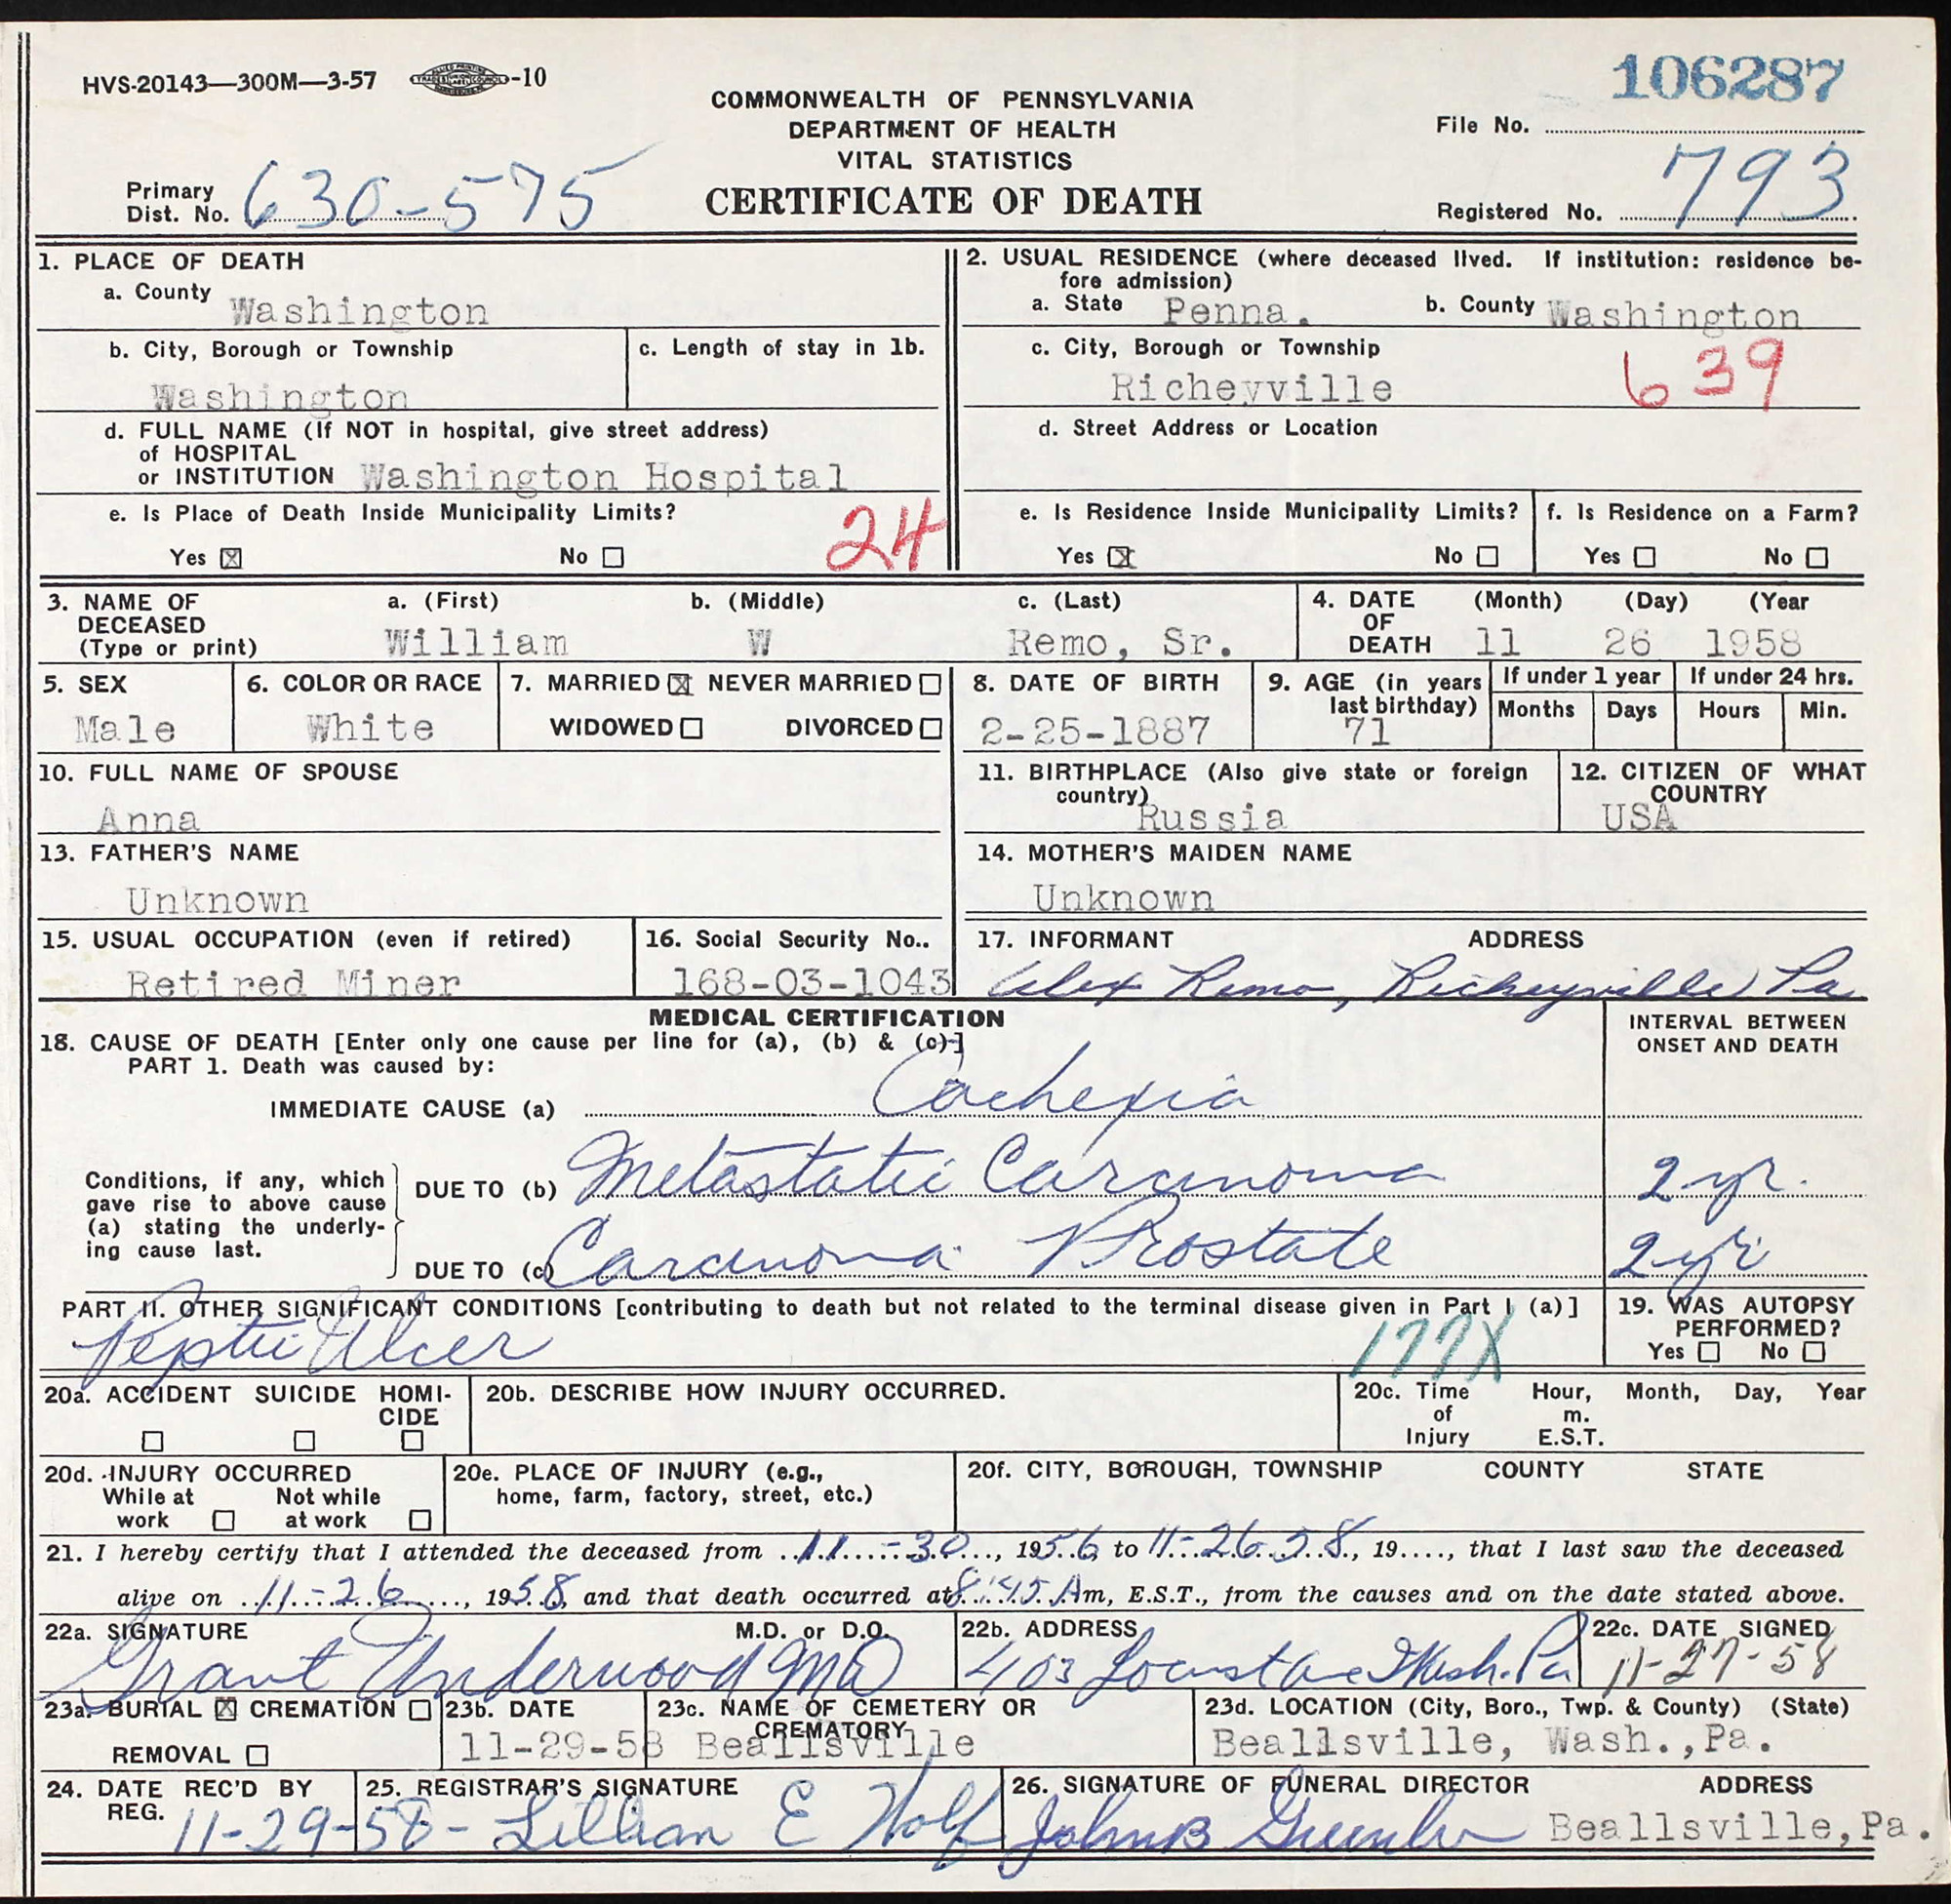 HVS-20143—300M—3-57 -10
106287
COMMONWEALTH OF PENNSYLVANIA
DEPARTMENT OF HEALTH
VITAL STATISTICS
CERTIFICATE OF DEATH
File No.
Primary Dist. No. 630-575
Registered No. 793
1. PLACE OF DEATH
a. County Washington
b. City, Borough or Township Washington
c. Length of stay in 1b.
d. FULL NAME (If NOT in hospital, give street address)
of HOSPITAL
or INSTITUTION Washington Hospital
e. Is Place of Death Inside Municipality Limits?
Yes ☒ No ☐ 24
2. USUAL RESIDENCE (where deceased lived. If institution: residence be-
fore admission)
a. State Penna. b. County Washington
c. City, Borough or Township
Richeyville 639
d. Street Address or Location
e. Is Residence Inside Municipality Limits?
Yes ☒ No ☐
f. Is Residence on a Farm?
Yes ☐ No ☐
3. NAME OF DECEASED (Type or print)
a. (First) William
b. (Middle) W
c. (Last) Remo, Sr.
4. DATE OF DEATH (Month) (Day) (Year
11 26 1958
5. SEX
Male
6. COLOR OR RACE
White
7. MARRIED ☒ NEVER MARRIED ☐
WIDOWED ☐ DIVORCED ☐
8. DATE OF BIRTH
2-25-1887
9. AGE (in years last birthday)
71
If under 1 year
Months Days
If under 24 hrs.
Hours Min.
10. FULL NAME OF SPOUSE
Anna
11. BIRTHPLACE (Also give state or foreign country)
Russia
12. CITIZEN OF WHAT COUNTRY
USA
13. FATHER'S NAME
Unknown
14. MOTHER'S MAIDEN NAME
Unknown
15. USUAL OCCUPATION (even if retired)
Retired Miner
16. Social Security No..
168-03-1043
17. INFORMANT ADDRESS
Alex Remo, Richeyville Pa
MEDICAL CERTIFICATION
18. CAUSE OF DEATH [Enter only one cause per line for (a), (b) & (c)]
PART 1. Death was caused by:
INTERVAL BETWEEN
ONSET AND DEATH
IMMEDIATE CAUSE (a) Cachexia
Conditions, if any, which
gave rise to above cause
(a) stating the underly-
ing cause last.
DUE TO (b) Metastatic Carcinoma 2 yr.
DUE TO (c) Carcinoma Prostate 2 yr
PART II. OTHER SIGNIFICANT CONDITIONS [contributing to death but not related to the terminal disease given in Part I (a)]
Peptic Ulcer 177X
19. WAS AUTOPSY PERFORMED?
Yes ☐ No ☐
20a. ACCIDENT SUICIDE HOMI-
CIDE
☐ ☐ ☐
20b. DESCRIBE HOW INJURY OCCURRED.
20c. Time of Injury Hour, Month, Day, Year
m.
E.S.T.
20d. INJURY OCCURRED
While at work ☐ Not while at work ☐
20e. PLACE OF INJURY (e.g.,
home, farm, factory, street, etc.)
20f. CITY, BOROUGH, TOWNSHIP COUNTY STATE
21. I hereby certify that I attended the deceased from 11-30, 1956 to 11-26-58, 19...., that I last saw the deceased
alive on 11-26, 1958, and that death occurred at 8:45 Am, E.S.T., from the causes and on the date stated above.
22a. SIGNATURE M.D. or D.O.
Grant Underwood MD
22b. ADDRESS
403 Locust Ave Wash. Pa
22c. DATE SIGNED
11-27-58
23a. BURIAL ☒ CREMATION ☐
REMOVAL ☐
23b. DATE
11-29-58
23c. NAME OF CEMETERY OR
CREMATORY
Beallsville
23d. LOCATION (City, Boro., Twp. & County) (State)
Beallsville, Wash.,Pa.
24. DATE REC'D BY REG.
11-29-58-
25. REGISTRAR'S SIGNATURE
Lillian E Wolf
26. SIGNATURE OF FUNERAL DIRECTOR ADDRESS
John B Beallsville, Pa.